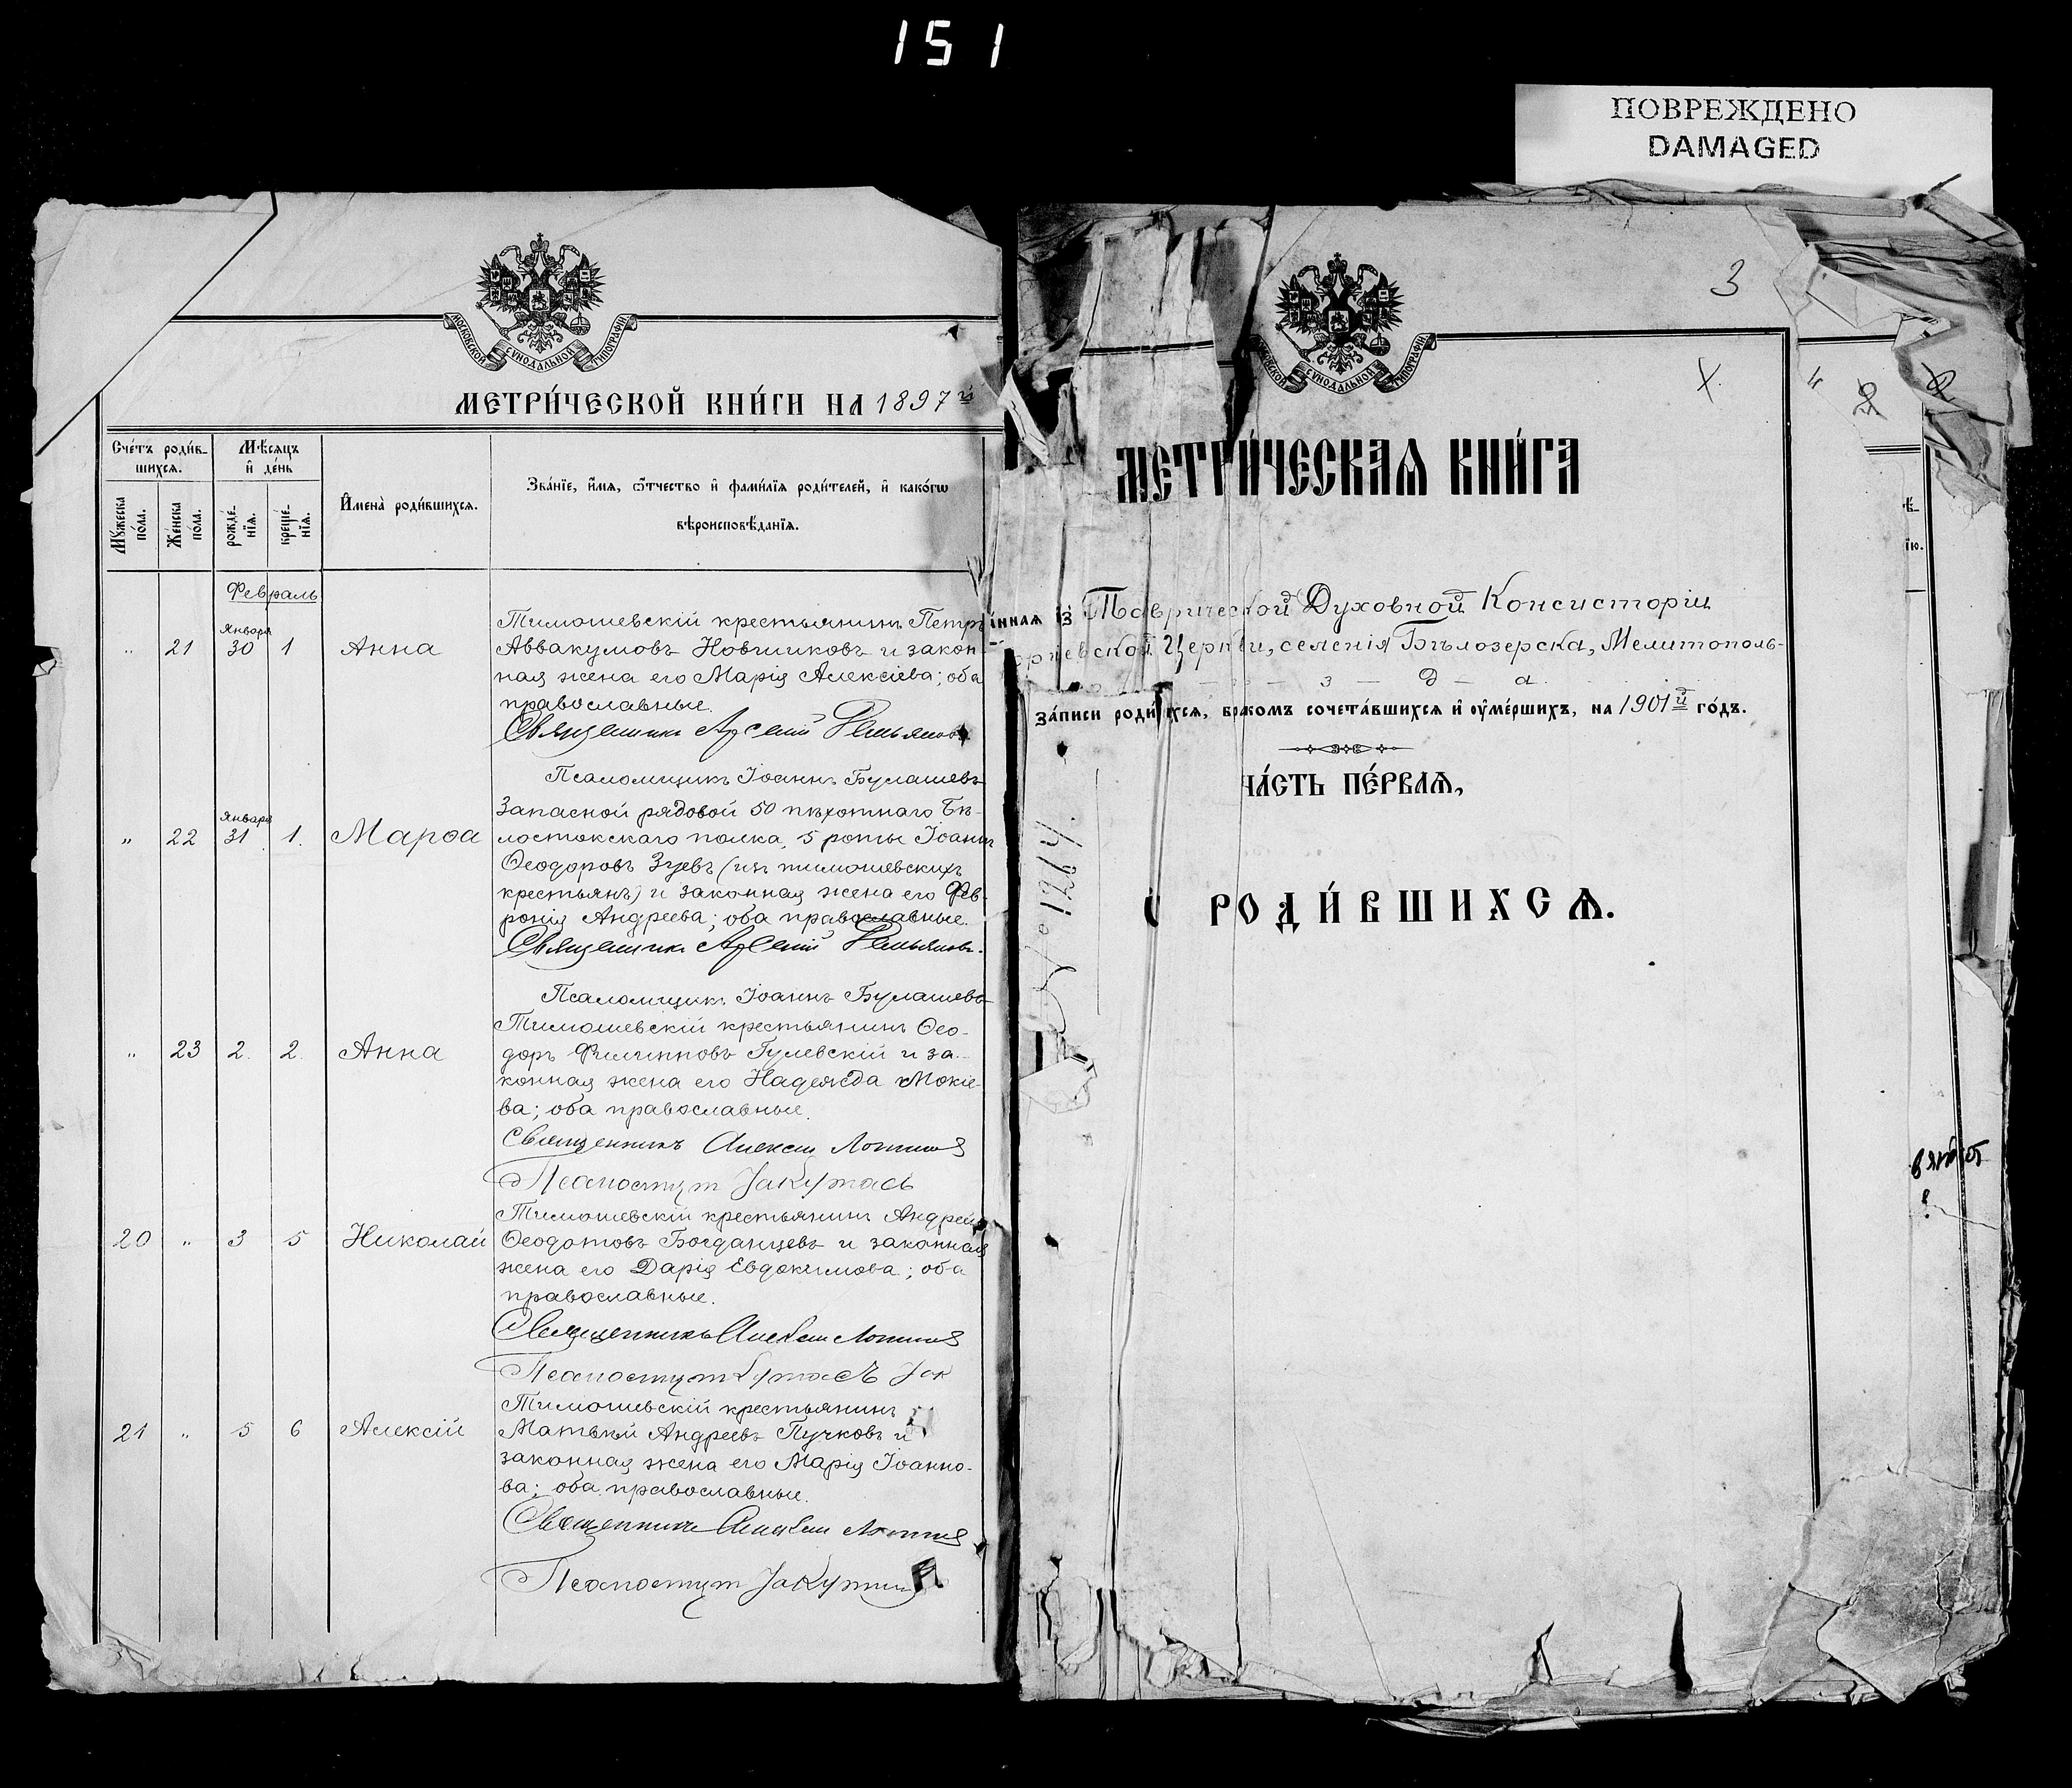 151
ПОВРЕЖДЕНО
DAMAGED
МОСКОВСКОЙ СѴНОДАЛЬНОЙ ТИПОГРАФІИ
МЕТРИ́ЧЕСКОЙ КНИ́ГИ НА 1897й
Сче́тъ роди́в-
шихся.
Мѣсяцъ
и҆ де́нь
И҆мена̀ роди́вшихся.
Зва́нїе, и҆́мя, ѻ҆́тчество и҆ фами́лїя роди́телей, и҆ како́гѡ
вѣроисповѣ́данїя.
Мꙋ́жеска
по́ла.
Же́нска
по́ла.
рожде́-
нїя.
креще́-
нїя.
Февраль
" 21 Января 30 1 Анна
Тимошевскій крестьянинъ Петръ
Аввакумовъ Новчиковъ и закон-
ная жена его Марія Алексіева; оба
православные.
Священникъ Арсеній
Псаломщикъ Іоаннъ Булашевъ
" 22 Января 31 1. Марѳа
Запасной рядовой 50 пѣхотнаго Бѣ-
лостокскаго полка, 5 роты Іоаннъ
Ѳеодоровъ Зуевъ (изъ тимошевскихъ
крестьянъ) и законная жена его Фев-
ронія Андреева; оба православные.
Священникъ Арсеній
Псаломщикъ Іоаннъ Булашевъ
" 23 2. 2. Анна
Тимошевскій крестьянинъ Ѳео-
доръ Филипповъ Гулевскій и за-
конная жена его Надежда Мокіе-
ва; оба православные.
Священникъ Алексій
20 " 3 5 Николай
Тимошевскій крестьянинъ Андрей
Ѳеодотовъ Богданцевъ и законная
жена его Дарія Евдокимова; оба
православные.
Священникъ Алексій
21 " 5 6 Алексій
Тимошевскій крестьянинъ
Матвѣй Андреевъ Пучковъ и
законная жена его Марія Іоанно-
ва; оба православные.
Священникъ Алексій
3
МОСКОВСКОЙ СѴНОДАЛЬНОЙ ТИПОГРАФІИ
МЕТРИ́ЧЕСКАѦ КНИ́ГА
а́нная из̾ Таврической Духовной Консисторіи
Церкви, селенія Бѣлозерска, Мелитополь-
з — д — а.
за́писи роди́ хся, бракомъ сочета́вшихся и҆ ᲂу҆ме́ршихъ, на 1901й го́дъ.
ЧА́СТЬ ПЕ́РВАѦ,
РОДИ́ВШИХСѦ.